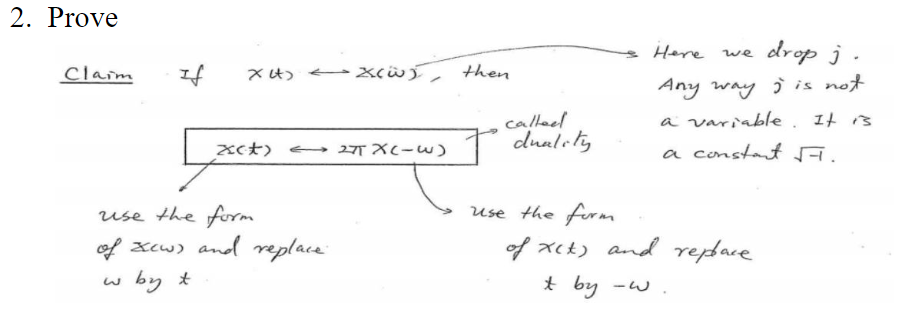 2. Prove
Claim If x(t) ⟷ X(ω), then
Here we drop j.
Any way j is not
a variable. It is
a constant √-1.
called
duality
X(t) ⟷ 2π x(-ω)
use the form
of X(ω) and replace
ω by t
use the form
of x(t) and replace
t by -ω.